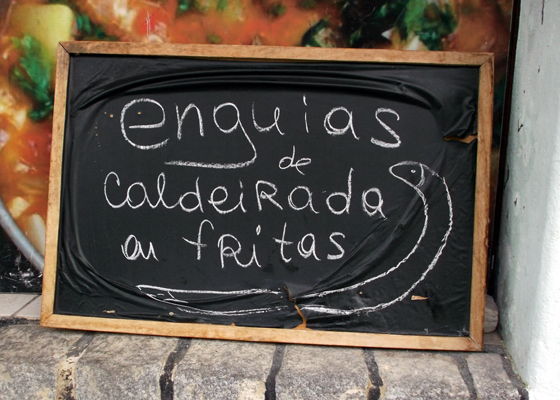 enguias
de
caldeirada
ou fritas